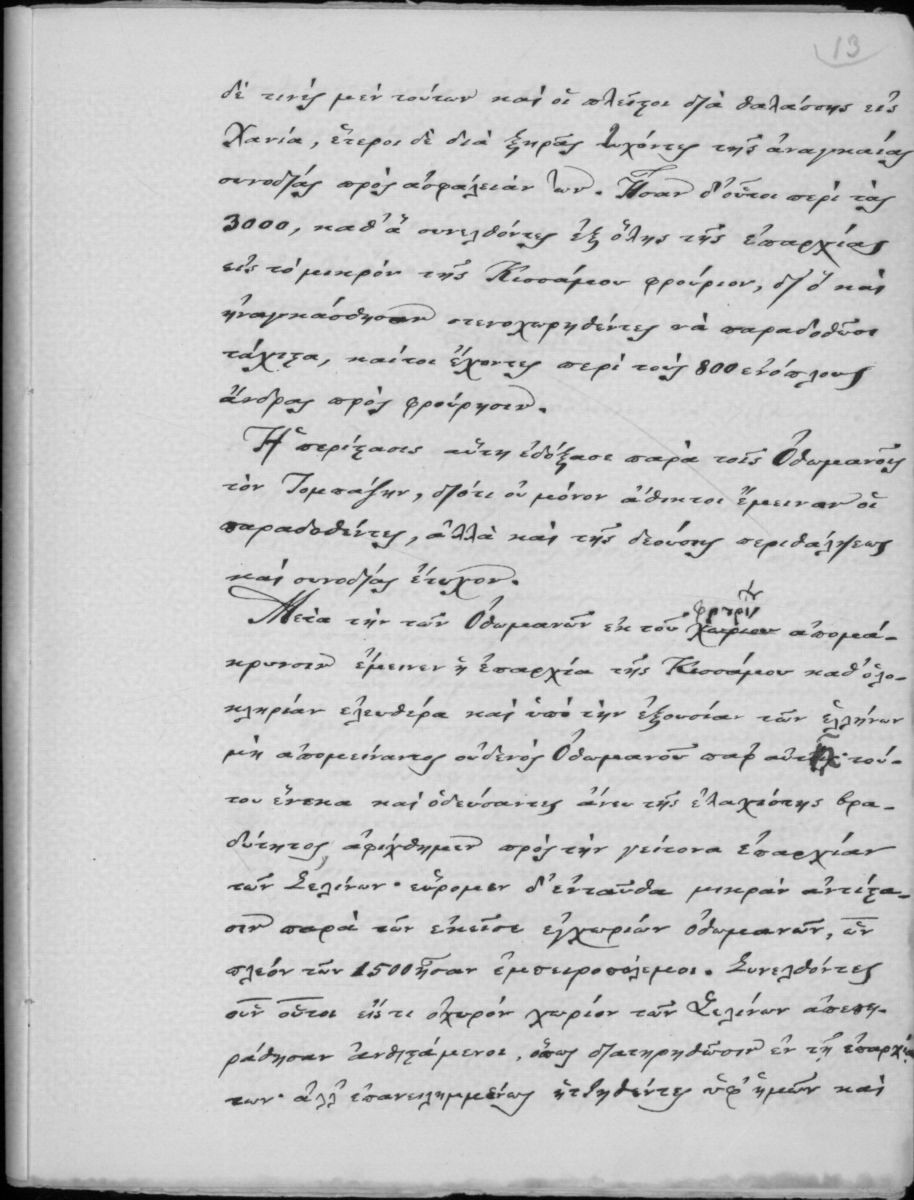 13
δέ τινές μέν τούτων καί οἱ πλεῖστοι διά θαλάσσης εἰς
Χανία, ἕτεροι δὲ διὰ ξηρᾶς τυχόντες τῆς ἀναγκαίας
συνοδίας πρὸς ἀσφάλειάν των. Ἦσαν δ' οὗτοι περί τὰς
3000, καθ' ἅ συνελθόντες ἐξ ὅλης τῆς ἐπαρχίας
εἰς τό μικρόν τῆς Κισσάμου φρούριον, δι' ὅ καί
ἠναγκάσθησαν στενοχωρηθέντες νά παραδοθῶσι
τάχιστα, καίτοι ἔχοντες περί τούς 800 ἐνόπλους
ἄνδρας πρός φρούρησιν.
Ἡ περίστασις αὕτη ἐδόξασε παρά τοῖς Ὀθωμανοῖς
τόν Τομπάζην, διότι οὐ μόνον ἄθικτοι ἔμειναν οἱ
παραδοθέντες, ἀλλὰ καί τῆς δεούσης περιθάλψεως
καί συνοδίας ἔτυχον.
Μετά τήν τῶν Ὀθωμανῶν ἐκ τοῦ χωρίου ἀπομά-
κρυνσιν ἔμεινεν ἡ ἐπαρχία τῆς Κισσάμου καθ' ὁλο-
κληρίαν ἐλευθέρα καί ὑπό τήν ἐξουσίαν τῶν ἑλλήνων
μή ἀπομείναντος οὐδενός Ὀθωμανοῦ παρ' τού-
του ἕνεκα καί ὁδεύσαντες ἄνευ τῆς ἐλαχίστης βρα-
δύτητος, ἀφίχθημεν πρός τήν γείτονα ἐπαρχίαν
τῶν Σελίνων· εὕρομεν δ' ἐνταῦθα μικράν ἀντίστα-
σιν παρά τῶν ἐκεῖσε ἐγχωρίων Ὀθωμανῶν, ὧν
πλέον τῶν 1500 ἦσαν ἐμπειροπόλεμοι. Συνελθόντες
οὖν οὗτοι εἴς τι ὀχυρόν χωρίον τῶν Σελίνων ἀπεπει-
ράθησαν ἀνθιστάμενοι, ὅπως διατηρηθῶσιν ἐν τῇ ἐπαρχίᾳ
των· ἀλλ' ἐπανειλημμένως ἡττηθέντες ὑφ' ἡμῶν καί